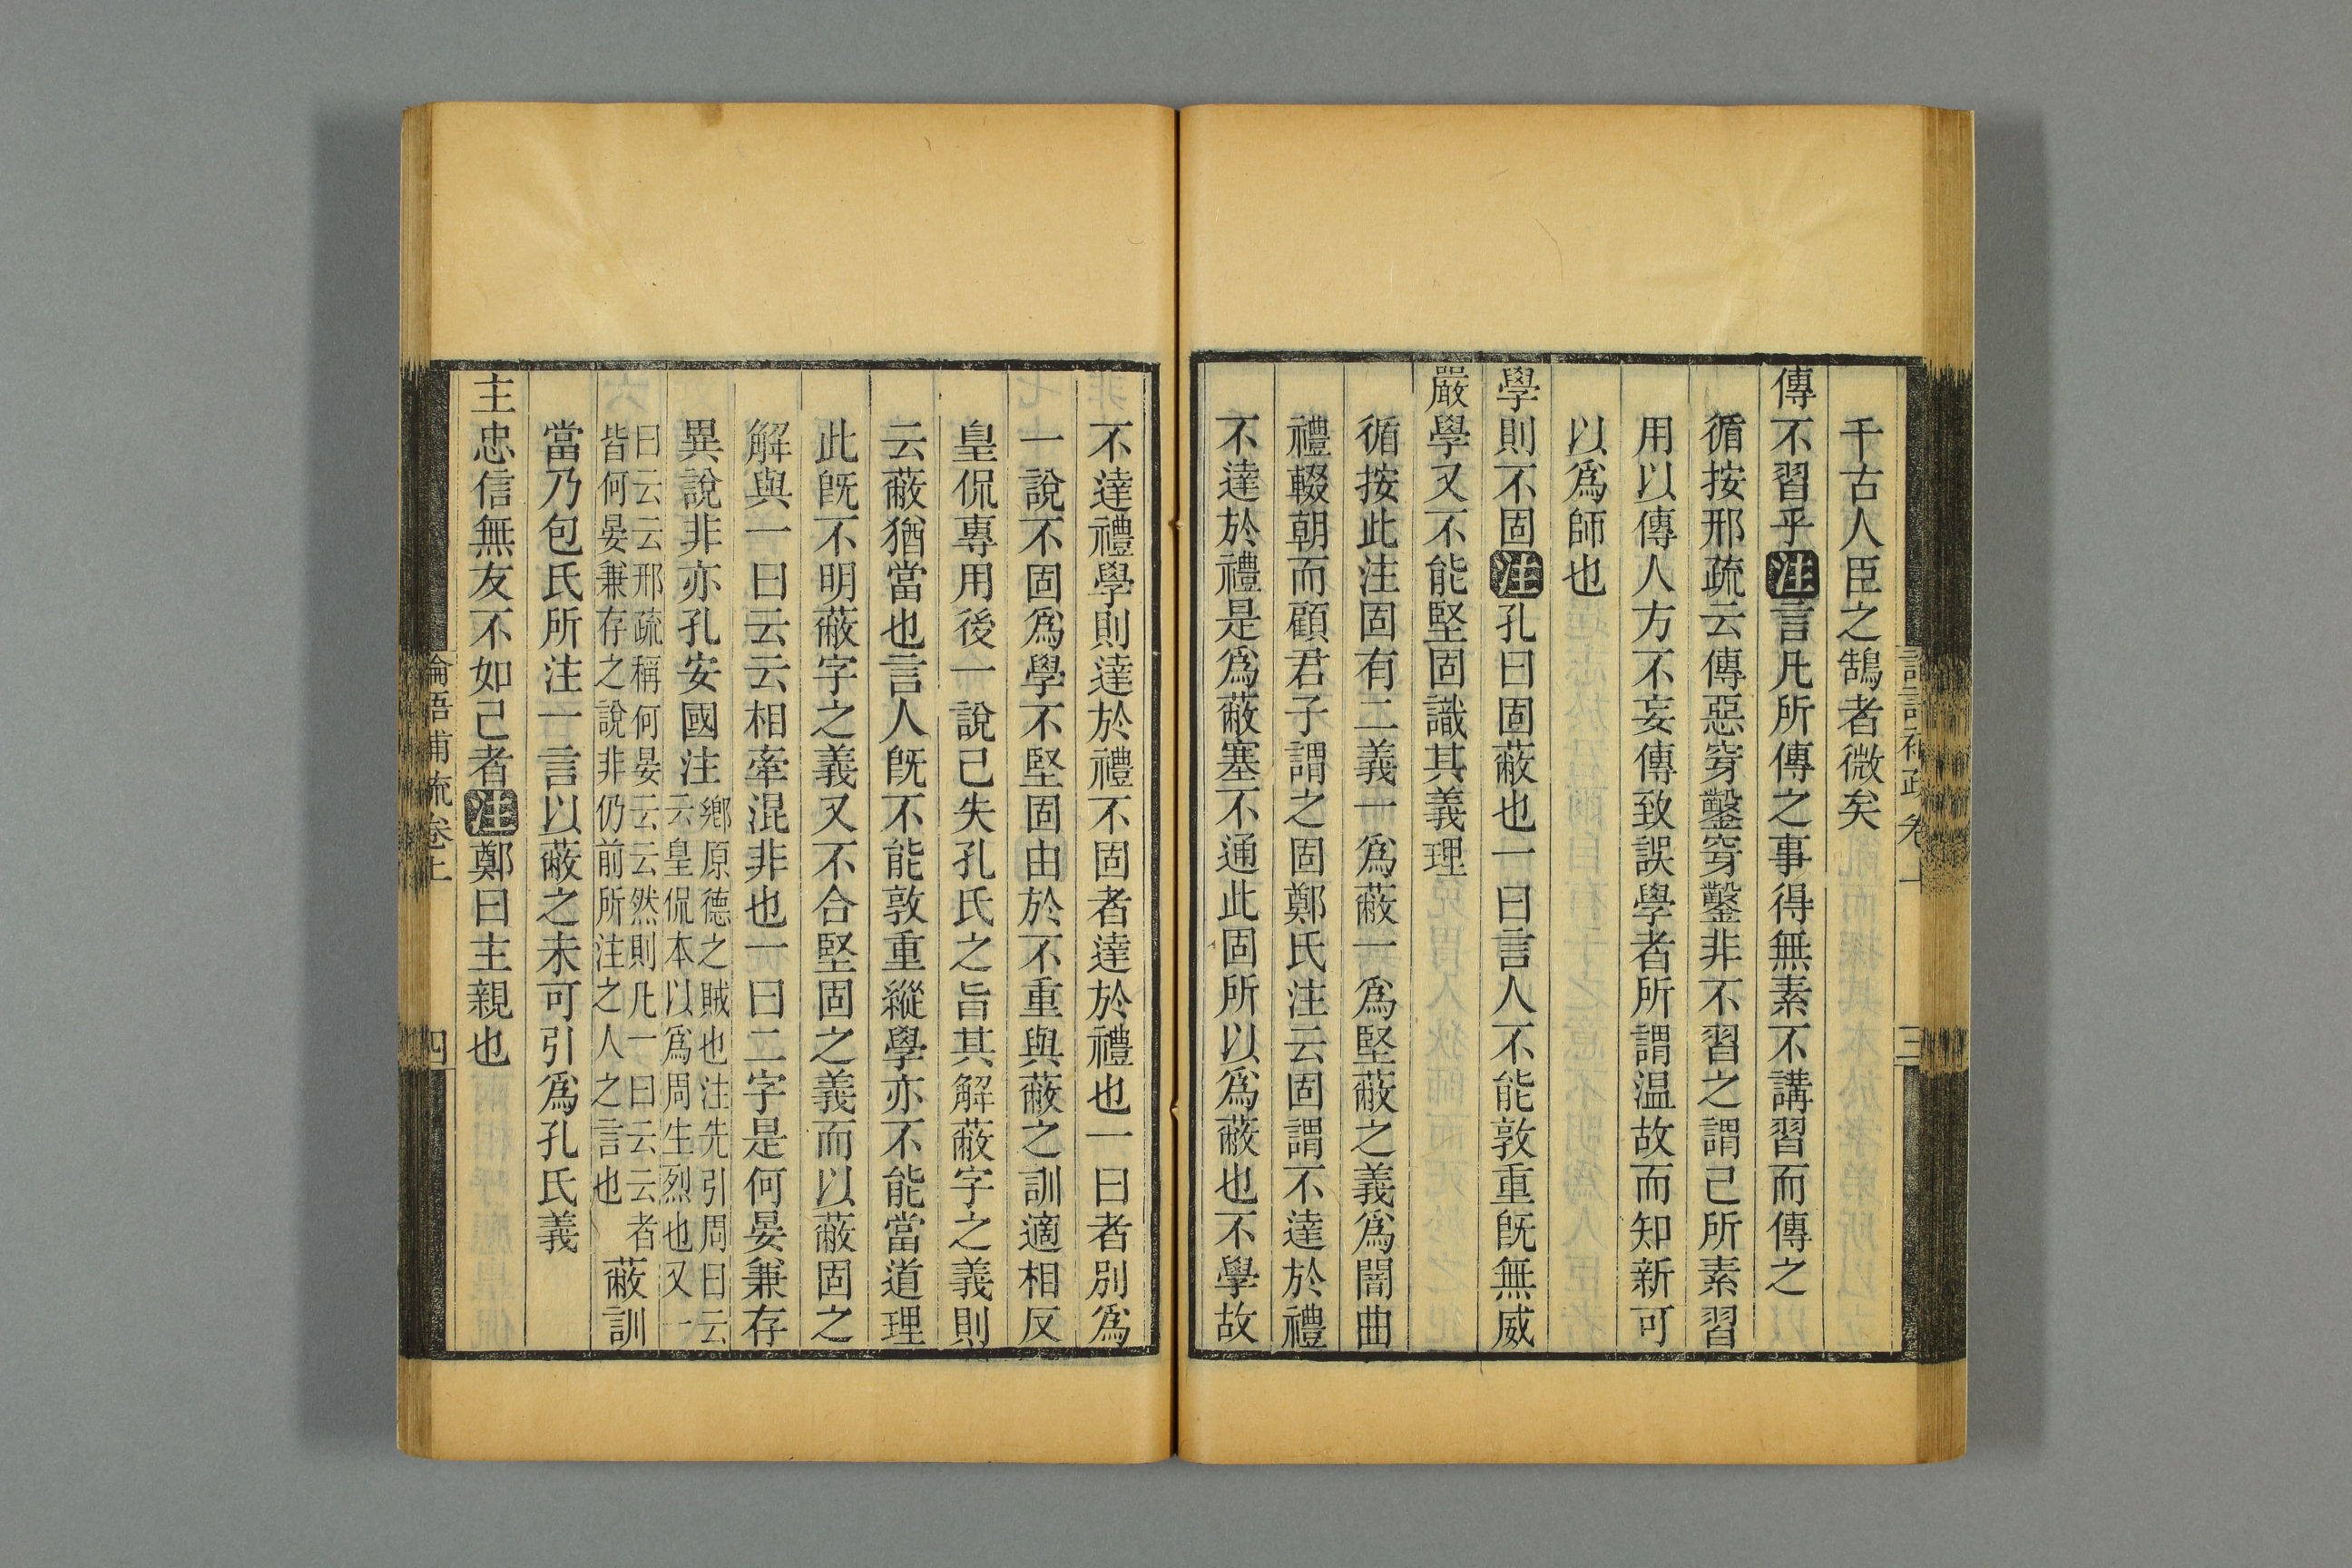 千古人臣之鵠者微矣
傳不習乎注言凡所傳之事得無素不講習而傳之
循按邢疏云傳惡穿鑿穿鑿非不習之謂己所素習
用以傳人方不妄傳致誤學者所謂温故而知新可
以爲師也
學則不固注孔曰固蔽也一曰言人不能敦重旣無威
嚴學又不能堅固識其義理
循按此注固有二義一爲蔽一爲堅蔽之義爲闇曲
禮輟朝而顧君子謂之固鄭氏注云固謂不達於禮
不達於禮是爲蔽塞不通此固所以爲蔽也不學故
三
不達禮學則達於禮不固者達於禮也一曰者別爲
一說不固爲學不堅固由於不重與蔽之訓適相反
皇侃專用後一說己失孔氏之旨其解蔽字之義則
云蔽猶當也言人旣不能敦重縱學亦不能當道理
此旣不明蔽字之義又不合堅固之義而以蔽固之
解與一曰云云相牽混非也一曰二字是何晏兼存
異說非亦孔安國注鄉原德之賊也注先引周曰云
云皇侃本以爲周生烈也又一
曰云云邢疏稱何晏云云然則凡一曰云云者
皆何晏兼存之說非仍前所注之人之言也蔽訓
當乃包氏所注一言以蔽之未可引爲孔氏義
主忠信無友不如己者注鄭曰主親也
論語補疏卷上
四